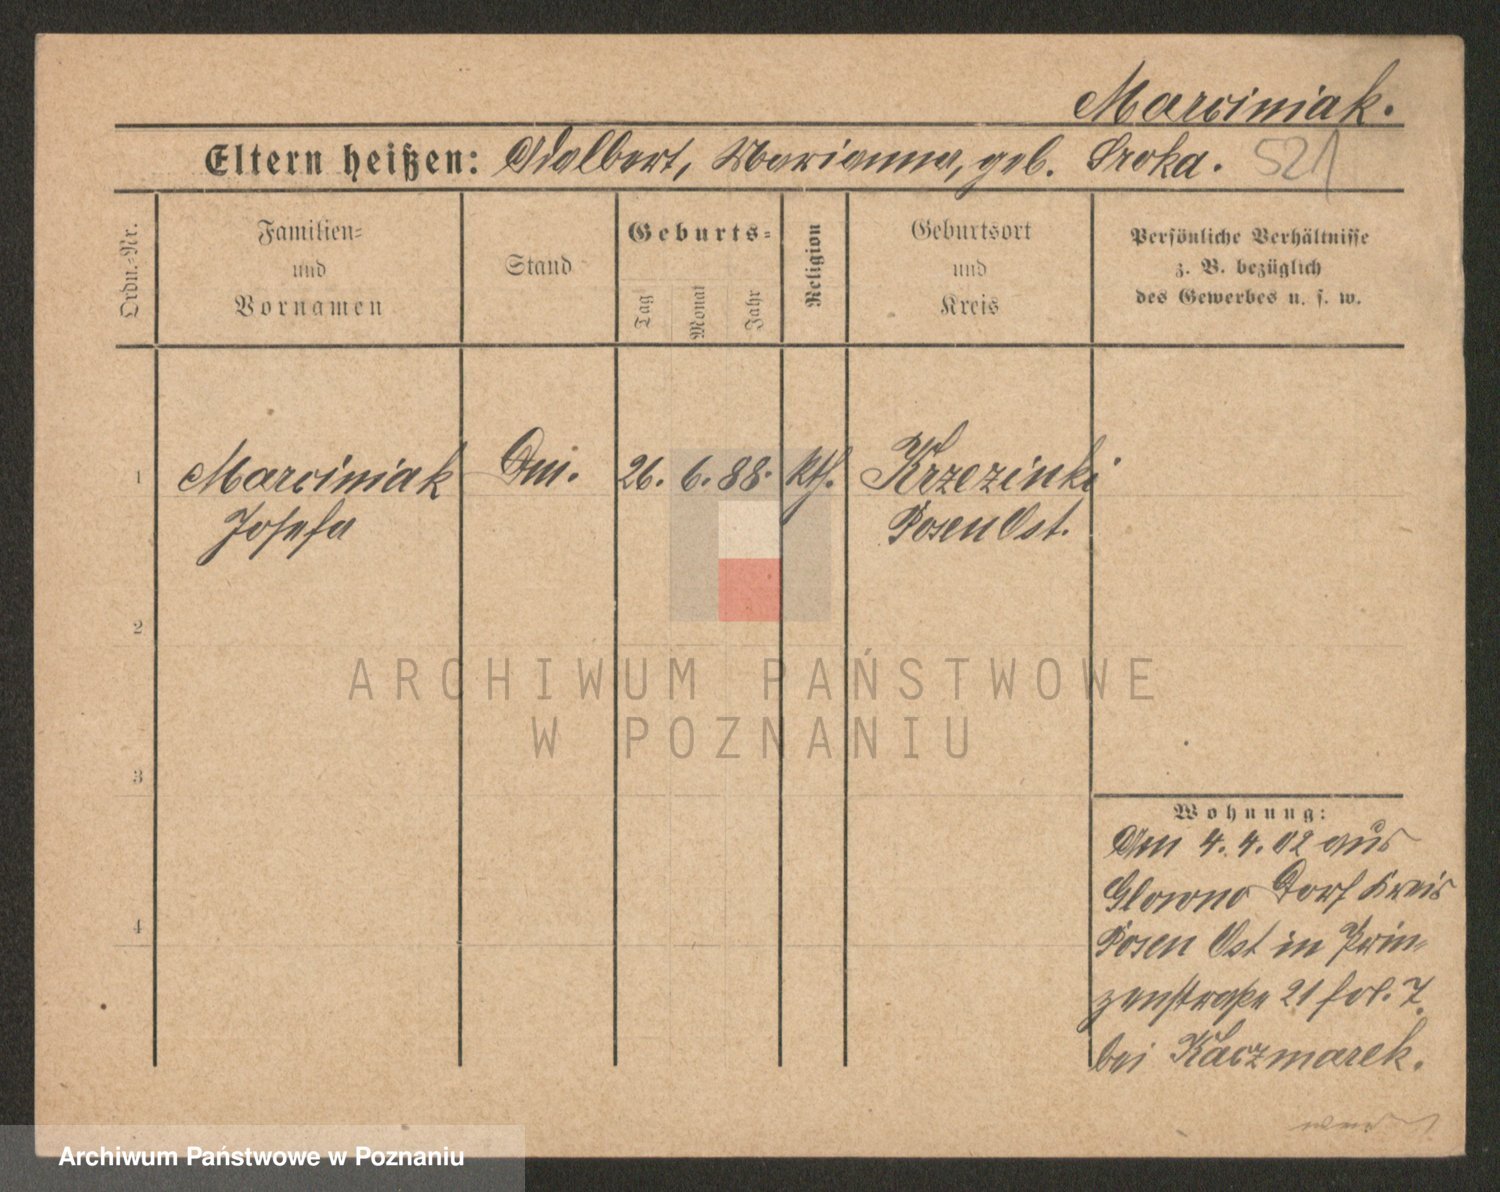 Marciniak.
Eltern heißen: Adalbert, Marianna, geb. Sroka. 521
Ordn.-Nr.
Familien- und Vornamen
Stand
Geburts-
Tag
Monat
Jahr
Religion
Geburtsort und Kreis
Persönliche Verhältnisse
z. B. bezüglich
des Gewerbes u. s. w.
1 Marciniak 26. 6. 88. kth. Krzezinki
Josefa Posen Ost.
2
3
4
ARCHIWUM PAŃSTWOWE
W POZNANIU
Wohnung:
Am 4. 4. 02 aus
Glowno Dorf Kreis
Posen Ost in Prin-
zenstraße 21 fol. 7.
bei Kaczmarek.
Archiwum Państwowe w Poznaniu